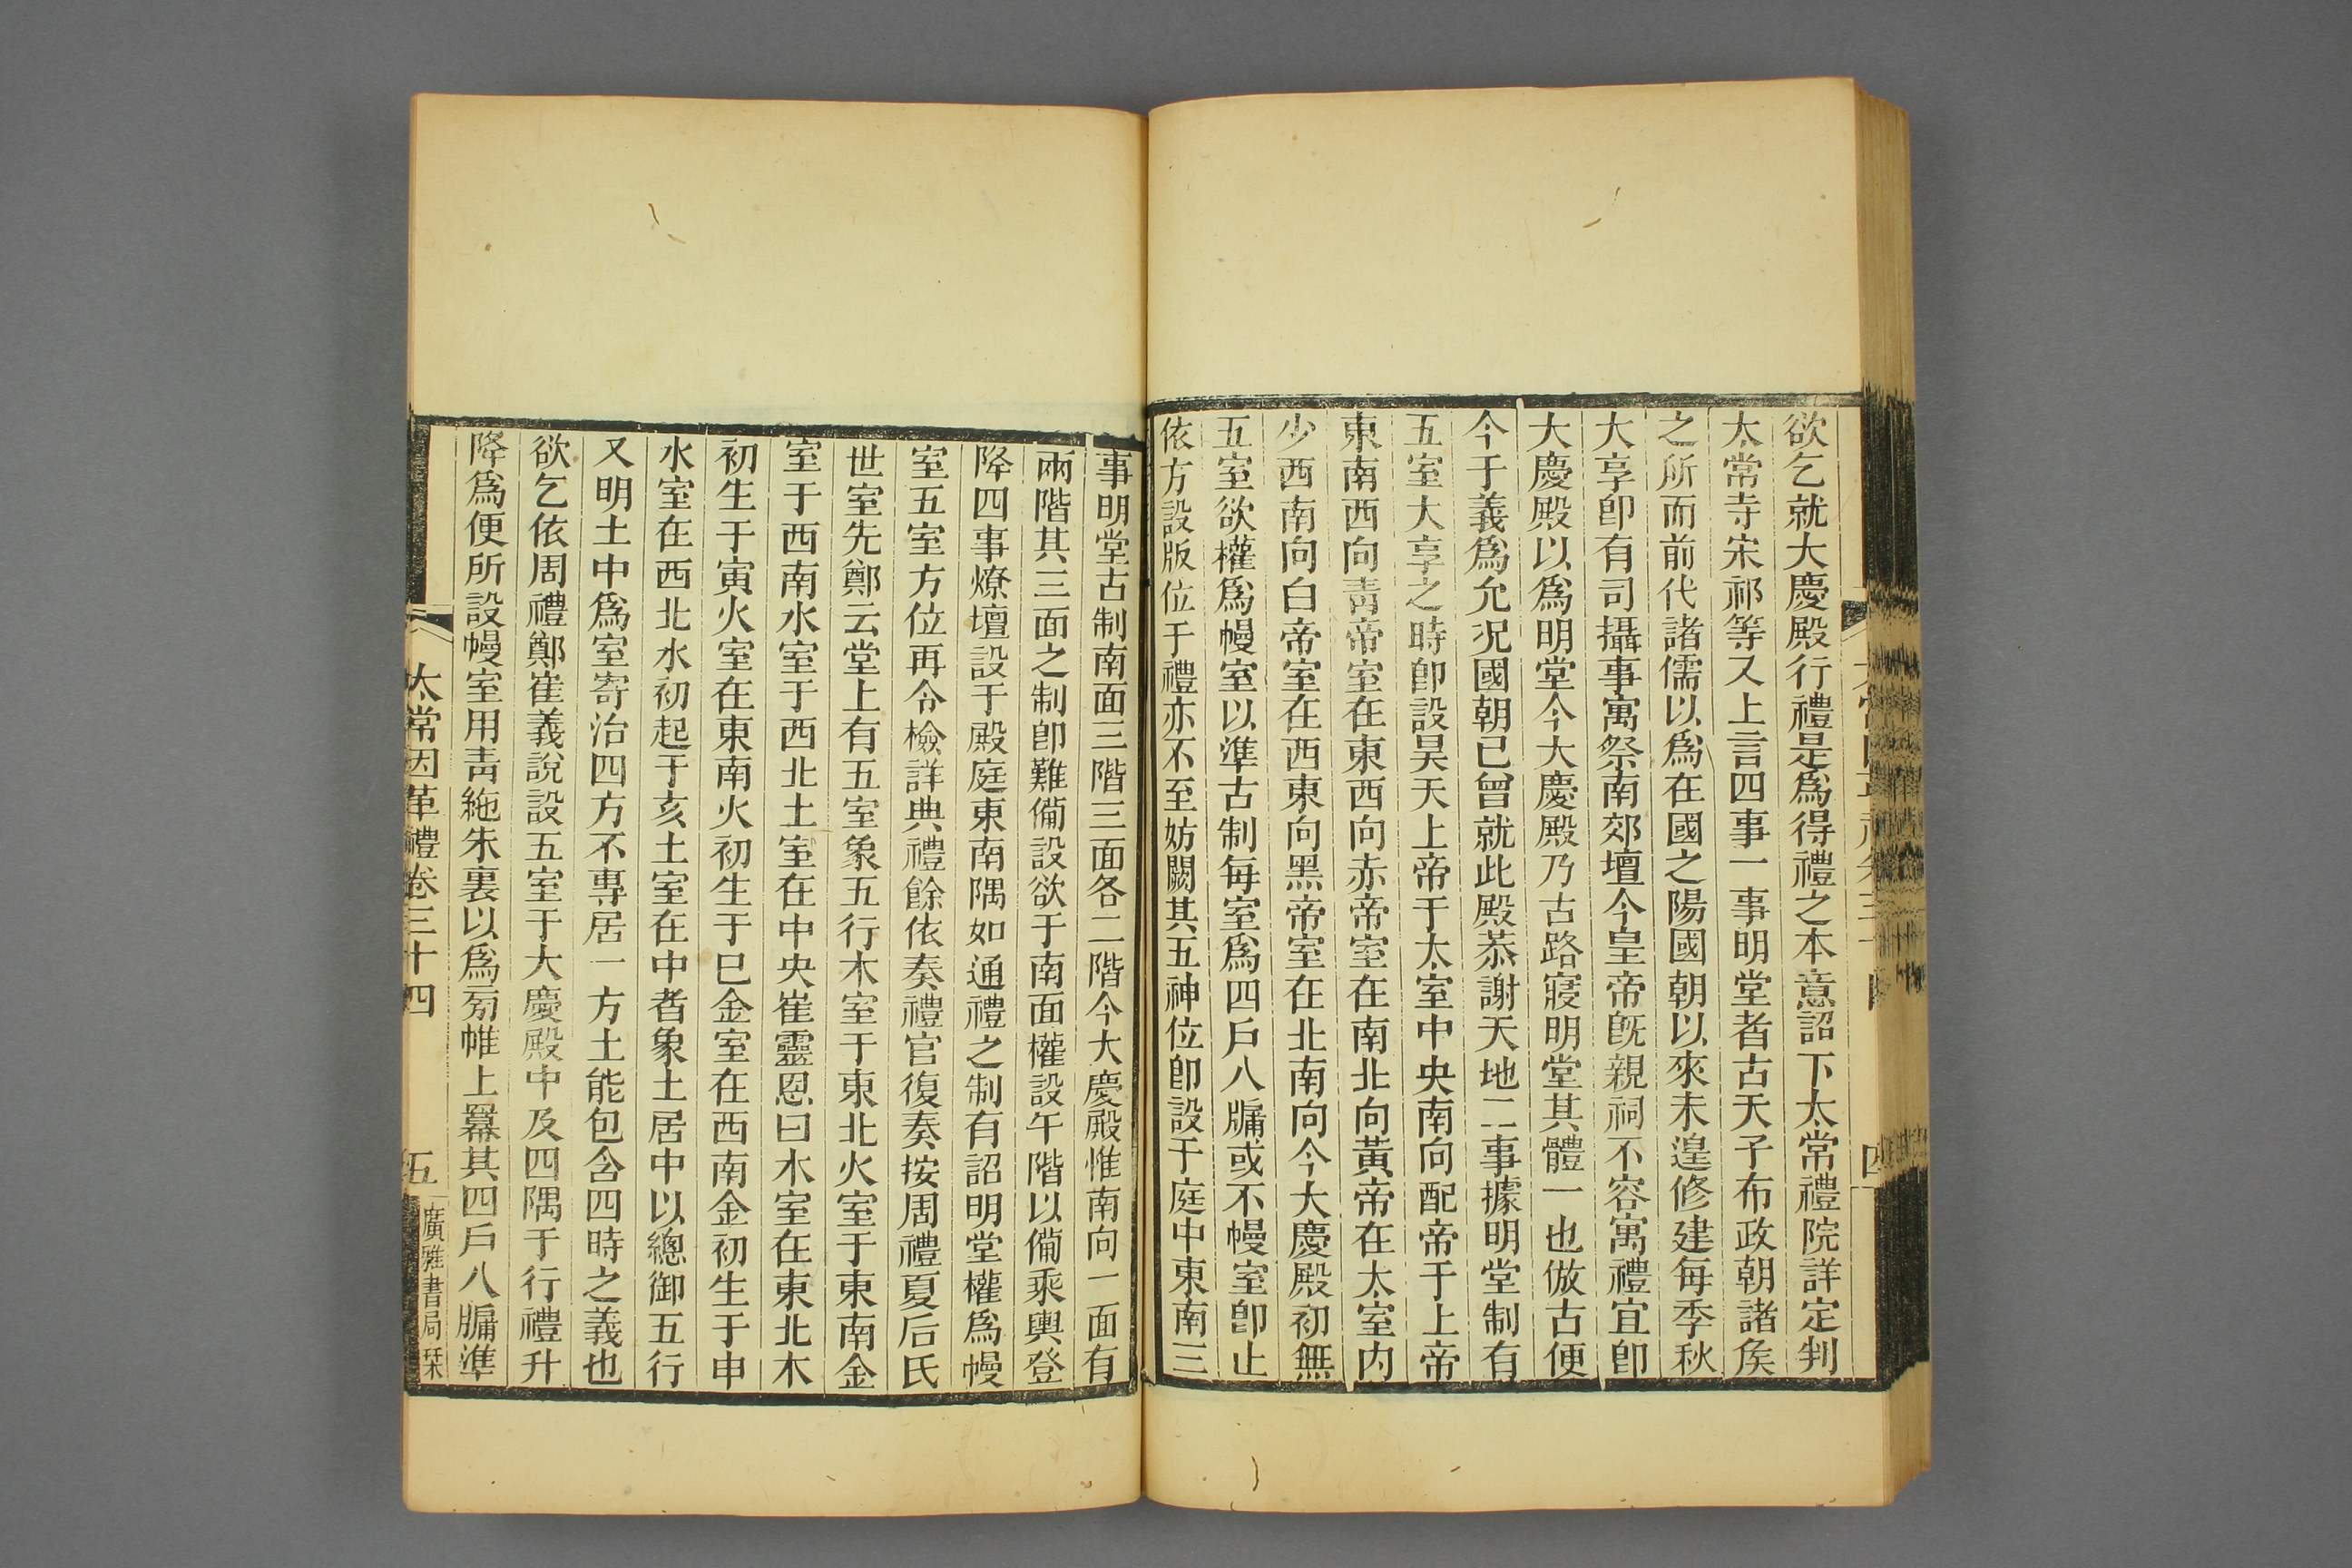 欲乞就大慶殿行禮是爲得禮之本意詔下太常禮院詳定判
太常寺宋祁等又上言四事一事明堂者古天子布政朝諸矦
之所而前代諸儒以爲在國之陽國朝以來未遑修建每季秋
大享卽有司攝事寓祭南郊壇今皇帝旣親祠不容寓禮宜卽
大慶殿以爲明堂今大慶殿乃古路寢明堂其體一也倣古便
今于義爲允况國朝已曾就此殿恭謝天地二事據明堂制有
五室大享之時卽設昊天上帝于太室中央南向配帝于上帝
東南西向青帝室在東西向赤帝室在南北向黃帝在太室內
少西南向白帝室在西東向黑帝室在北南向今大慶殿初無
五室欲權爲幔室以準古制每室爲四戶八牖或不幔室卽止
依方設版位于禮亦不至妨闕其五神位卽設于庭中東南三
事明堂古制南面三階三面各二階今大慶殿惟南向一面有
兩階其三面之制卽難備設欲于南面權設午階以備乘輿登
降四事燎壇設于殿庭東南隅如通禮之制有詔明堂權爲幔
室五室方位再令檢詳典禮餘依奏禮官復奏按周禮夏后氏
世室先鄭云堂上有五室象五行木室于東北火室于東南金
室于西南水室于西北土室在中央崔靈恩曰木室在東北木
初生于寅火室在東南火初生于巳金室在西南金初生于申
水室在西北水初起于亥土室在中者象土居中以總御五行
又明土中爲室寄治四方不專居一方土能包含四時之義也
欲乞依周禮鄭崔義說設五室于大慶殿中及四隅于行禮升
降爲便所設幔室用青絁朱裏以爲㫄帷上羃其四戶八牖準
太常因革禮卷三十四 五 廣雅書局栞